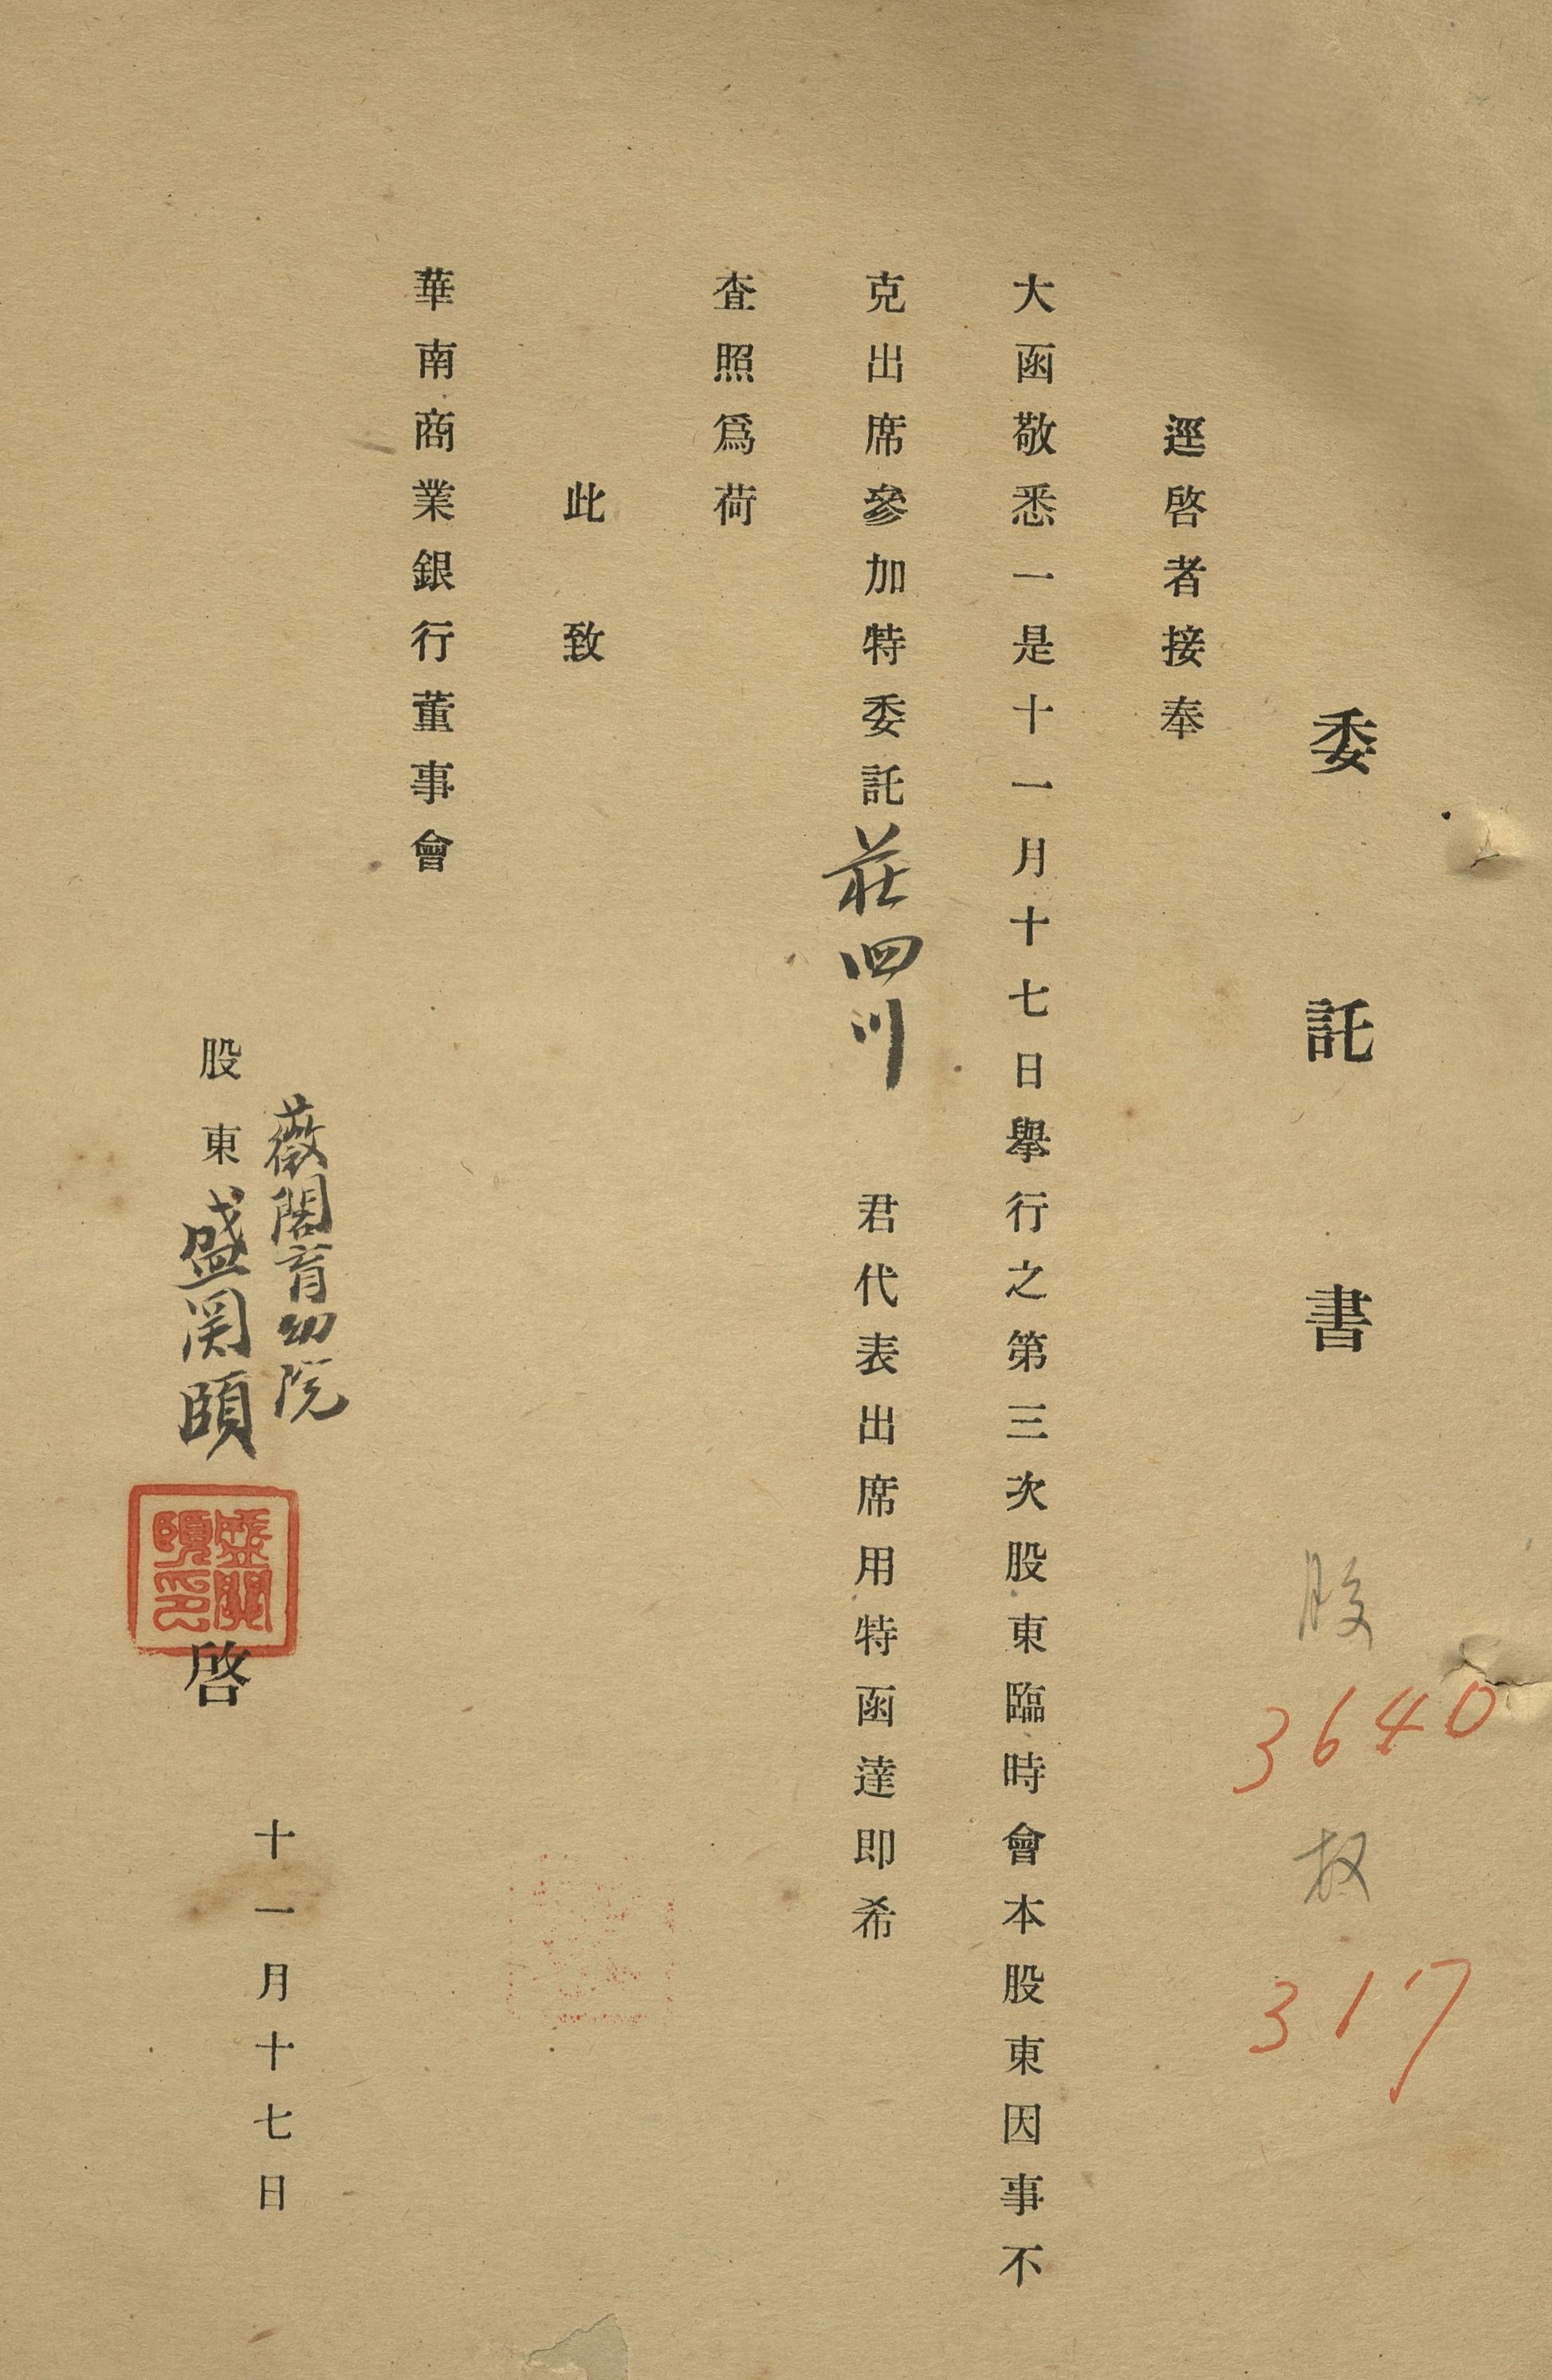 委託書
股
3640
权
317
逕啓者接奉
大函敬悉一是十一月十七日舉行之第三次股東臨時會本股東因事不
克出席參加特委託莊四川 君代表出席用特函達即希
查照爲荷
此致
華南商業銀行董事會
薇閣育幼院
股東盛関頤 啓
盛關頤印
十一月十七日